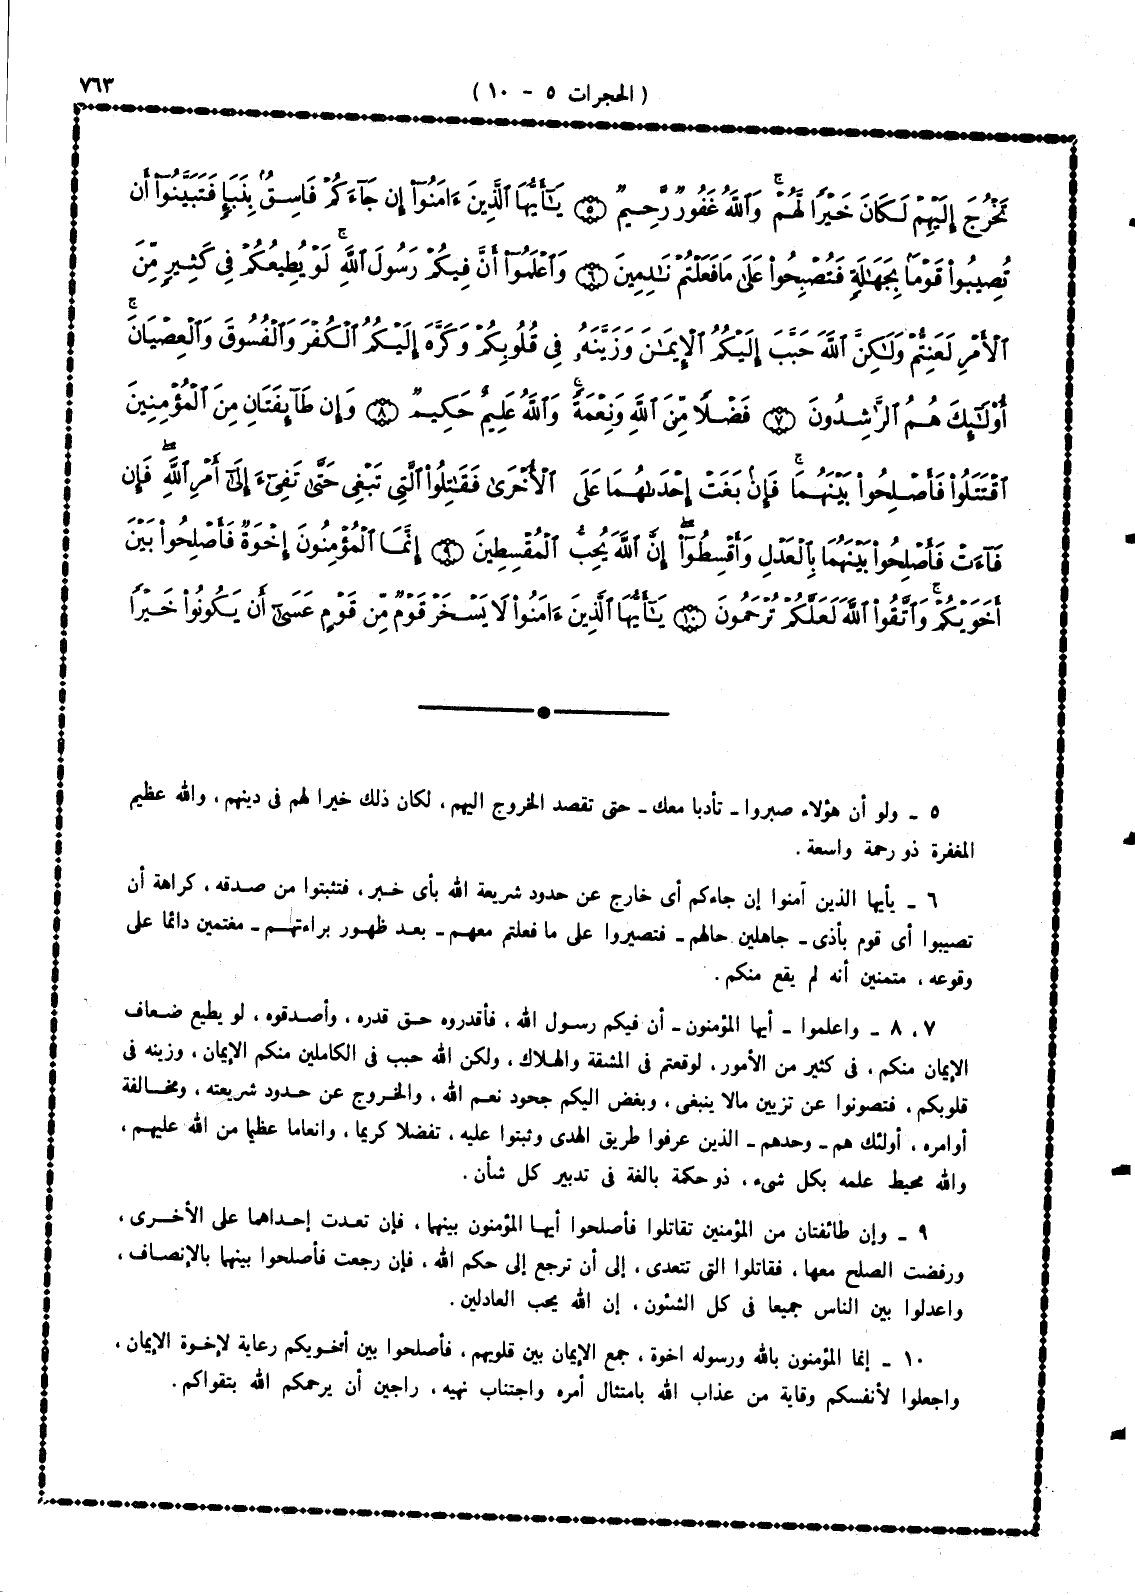 ٧٦٣
( الحجرات ٥ - ١٠ )
تَخْرُجَ إِلَيْهِمْ لَكَانَ خَيْرًا لَّهُمْ ۚ وَٱللَّهُ غَفُورٌ رَّحِيمٌ ۝٥ يَـٰٓأَيُّهَا ٱلَّذِينَ ءَامَنُوٓا۟ إِن جَآءَكُمْ فَاسِقٌۢ بِنَبَإٍ فَتَبَيَّنُوٓا۟ أَن
تُصِيبُوا۟ قَوْمًۢا بِجَهَـٰلَةٍ فَتُصْبِحُوا۟ عَلَىٰ مَا فَعَلْتُمْ نَـٰدِمِينَ ۝٦ وَٱعْلَمُوٓا۟ أَنَّ فِيكُمْ رَسُولَ ٱللَّهِ ۚ لَوْ يُطِيعُكُمْ فِى كَثِيرٍ مِّنَ
ٱلْأَمْرِ لَعَنِتُّمْ وَلَـٰكِنَّ ٱللَّهَ حَبَّبَ إِلَيْكُمُ ٱلْإِيمَـٰنَ وَزَيَّنَهُۥ فِى قُلُوبِكُمْ وَكَرَّهَ إِلَيْكُمُ ٱلْكُفْرَ وَٱلْفُسُوقَ وَٱلْعِصْيَانَ ۚ
أُو۟لَـٰٓئِكَ هُمُ ٱلرَّٰشِدُونَ ۝٧ فَضْلًا مِّنَ ٱللَّهِ وَنِعْمَةً ۚ وَٱللَّهُ عَلِيمٌ حَكِيمٌ ۝٨ وَإِن طَآئِفَتَانِ مِنَ ٱلْمُؤْمِنِينَ
ٱقْتَتَلُوا۟ فَأَصْلِحُوا۟ بَيْنَهُمَا ۚ فَإِنۢ بَغَتْ إِحْدَىٰهُمَا عَلَى ٱلْأُخْرَىٰ فَقَـٰتِلُوا۟ ٱلَّتِى تَبْغِى حَتَّىٰ تَفِىٓءَ إِلَىٰٓ أَمْرِ ٱللَّهِ ۖ فَإِن
فَآءَتْ فَأَصْلِحُوا۟ بَيْنَهُمَا بِٱلْعَدْلِ وَأَقْسِطُوٓا۟ ۖ إِنَّ ٱللَّهَ يُحِبُّ ٱلْمُقْسِطِينَ ۝٩ إِنَّمَا ٱلْمُؤْمِنُونَ إِخْوَةٌ فَأَصْلِحُوا۟ بَيْنَ
أَخَوَيْكُمْ ۚ وَٱتَّقُوا۟ ٱللَّهَ لَعَلَّكُمْ تُرْحَمُونَ ۝١٠ يَـٰٓأَيُّهَا ٱلَّذِينَ ءَامَنُوا۟ لَا يَسْخَرْ قَوْمٌ مِّن قَوْمٍ عَسَىٰٓ أَن يَكُونُوا۟ خَيْرًا
٥ ـ ولو أن هؤلاء صبروا ـ تأدبا معك ـ حتى تقصد الخروج اليهم ، لكان ذلك خيرا لهم فى دينهم ، والله عظيم
المغفرة ذو رحمة واسعة .
٦ ـ يأيها الذين آمنوا إن جاءكم أى خارج عن حدود شريعة الله بأى خبر ، فتثبتوا من صدقه ، كراهة أن
تصيبوا أى قوم بأذى ـ جاهلين حالهم ـ فتصيروا على ما فعلتم معهم ـ بعد ظهور براءتهم ـ مغتمين دائما على
وقوعه ، متمنين أنه لم يقع منكم .
٧ ، ٨ ـ واعلموا ـ أيها المؤمنون ـ أن فيكم رسول الله ، فأقدروه حق قدره ، وأصدقوه ، لو يطيع ضعاف
الإيمان منكم ، فى كثير من الأمور ، لوقعتم فى المشقة والهلاك ، ولكن الله حبب فى الكاملين منكم الإيمان ، وزينه فى
قلوبكم ، فتصونوا عن تزيين مالا ينبغى ، وبغض اليكم جحود نعم الله ، والخروج عن حدود شريعته ، ومخالفة
أوامره ، أولئك هم ـ وحدهم ـ الذين عرفوا طريق الهدى وثبتوا عليه ، تفضلا كريما ، وانعاما عظيما من الله عليهم ،
والله محيط علمه بكل شىء ، ذو حكمة بالغة فى تدبير كل شأن .
٩ ـ وإن طائفتان من المؤمنين تقاتلوا فأصلحوا أيها المؤمنون بينهما ، فإن تعدت إحداهما على الأخرى ،
ورفضت الصلح معها ، فقاتلوا التى تتعدى ، إلى أن ترجع إلى حكم الله ، فإن رجعت فأصلحوا بينهما بالإنصاف ،
واعدلوا بين الناس جميعا فى كل الشئون ، إن الله يحب العادلين .
١٠ ـ إنما المؤمنون بالله ورسوله اخوة ، جمع الإيمان بين قلوبهم ، فأصلحوا بين أخويكم رعاية لإخوة الإيمان ،
واجعلوا لأنفسكم وقاية من عذاب الله بامتثال أمره واجتناب نهيه ، راجين أن يرحمكم الله بتقواكم .